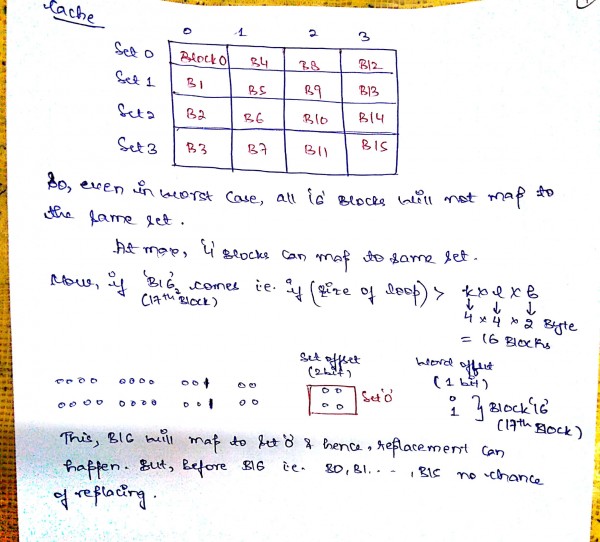 Cache
0 1 2 3
Set 0 Block0 B4 B8 B12
Set 1 B1 B5 B9 B13
Set 2 B2 B6 B10 B14
Set 3 B3 B7 B11 B15
So, even in worst case, all '16' Blocks will not map to
the same set.
At max, '4' Blocks can map to same set.
Now, if 'B16' comes i.e. if (size of loop) > k x l x b
(17th Block)
4 x 4 x 2 Byte
= 16 Blocks
Set offset word offset
(2 bit) (1 bit)
0000 0000 001 00 00 Set '0' 0
0000 0000 001 00 00 1 } Block '16'
(17th Block)
This, B16 will map to set '0' & hence, replacement can
happen. But, Before B16 i.e. B0, B1..., B15 no chance
of replacing.